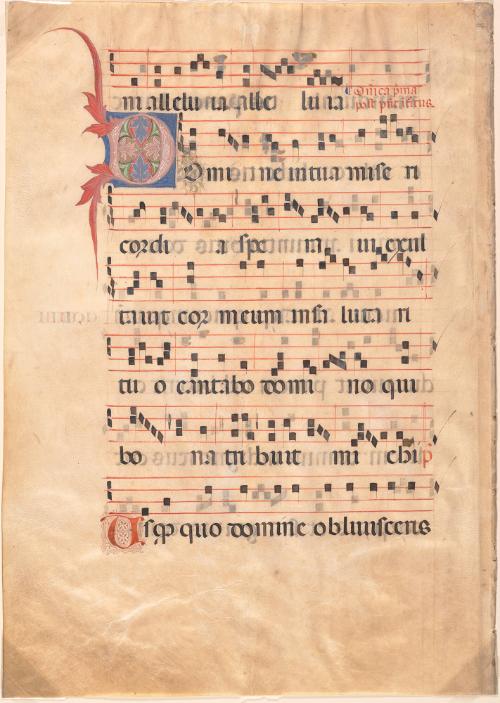 m alleluya alle luya
Dñica p̄ma
post pñtecostes
Domine in tua mise ri
cordi a spe ra ui exul
tauit cor meum in sa luta ri
tu o cantabo domi no qui
bo na tribuit mi chi p̄
Usqp quo domine obliuisceris